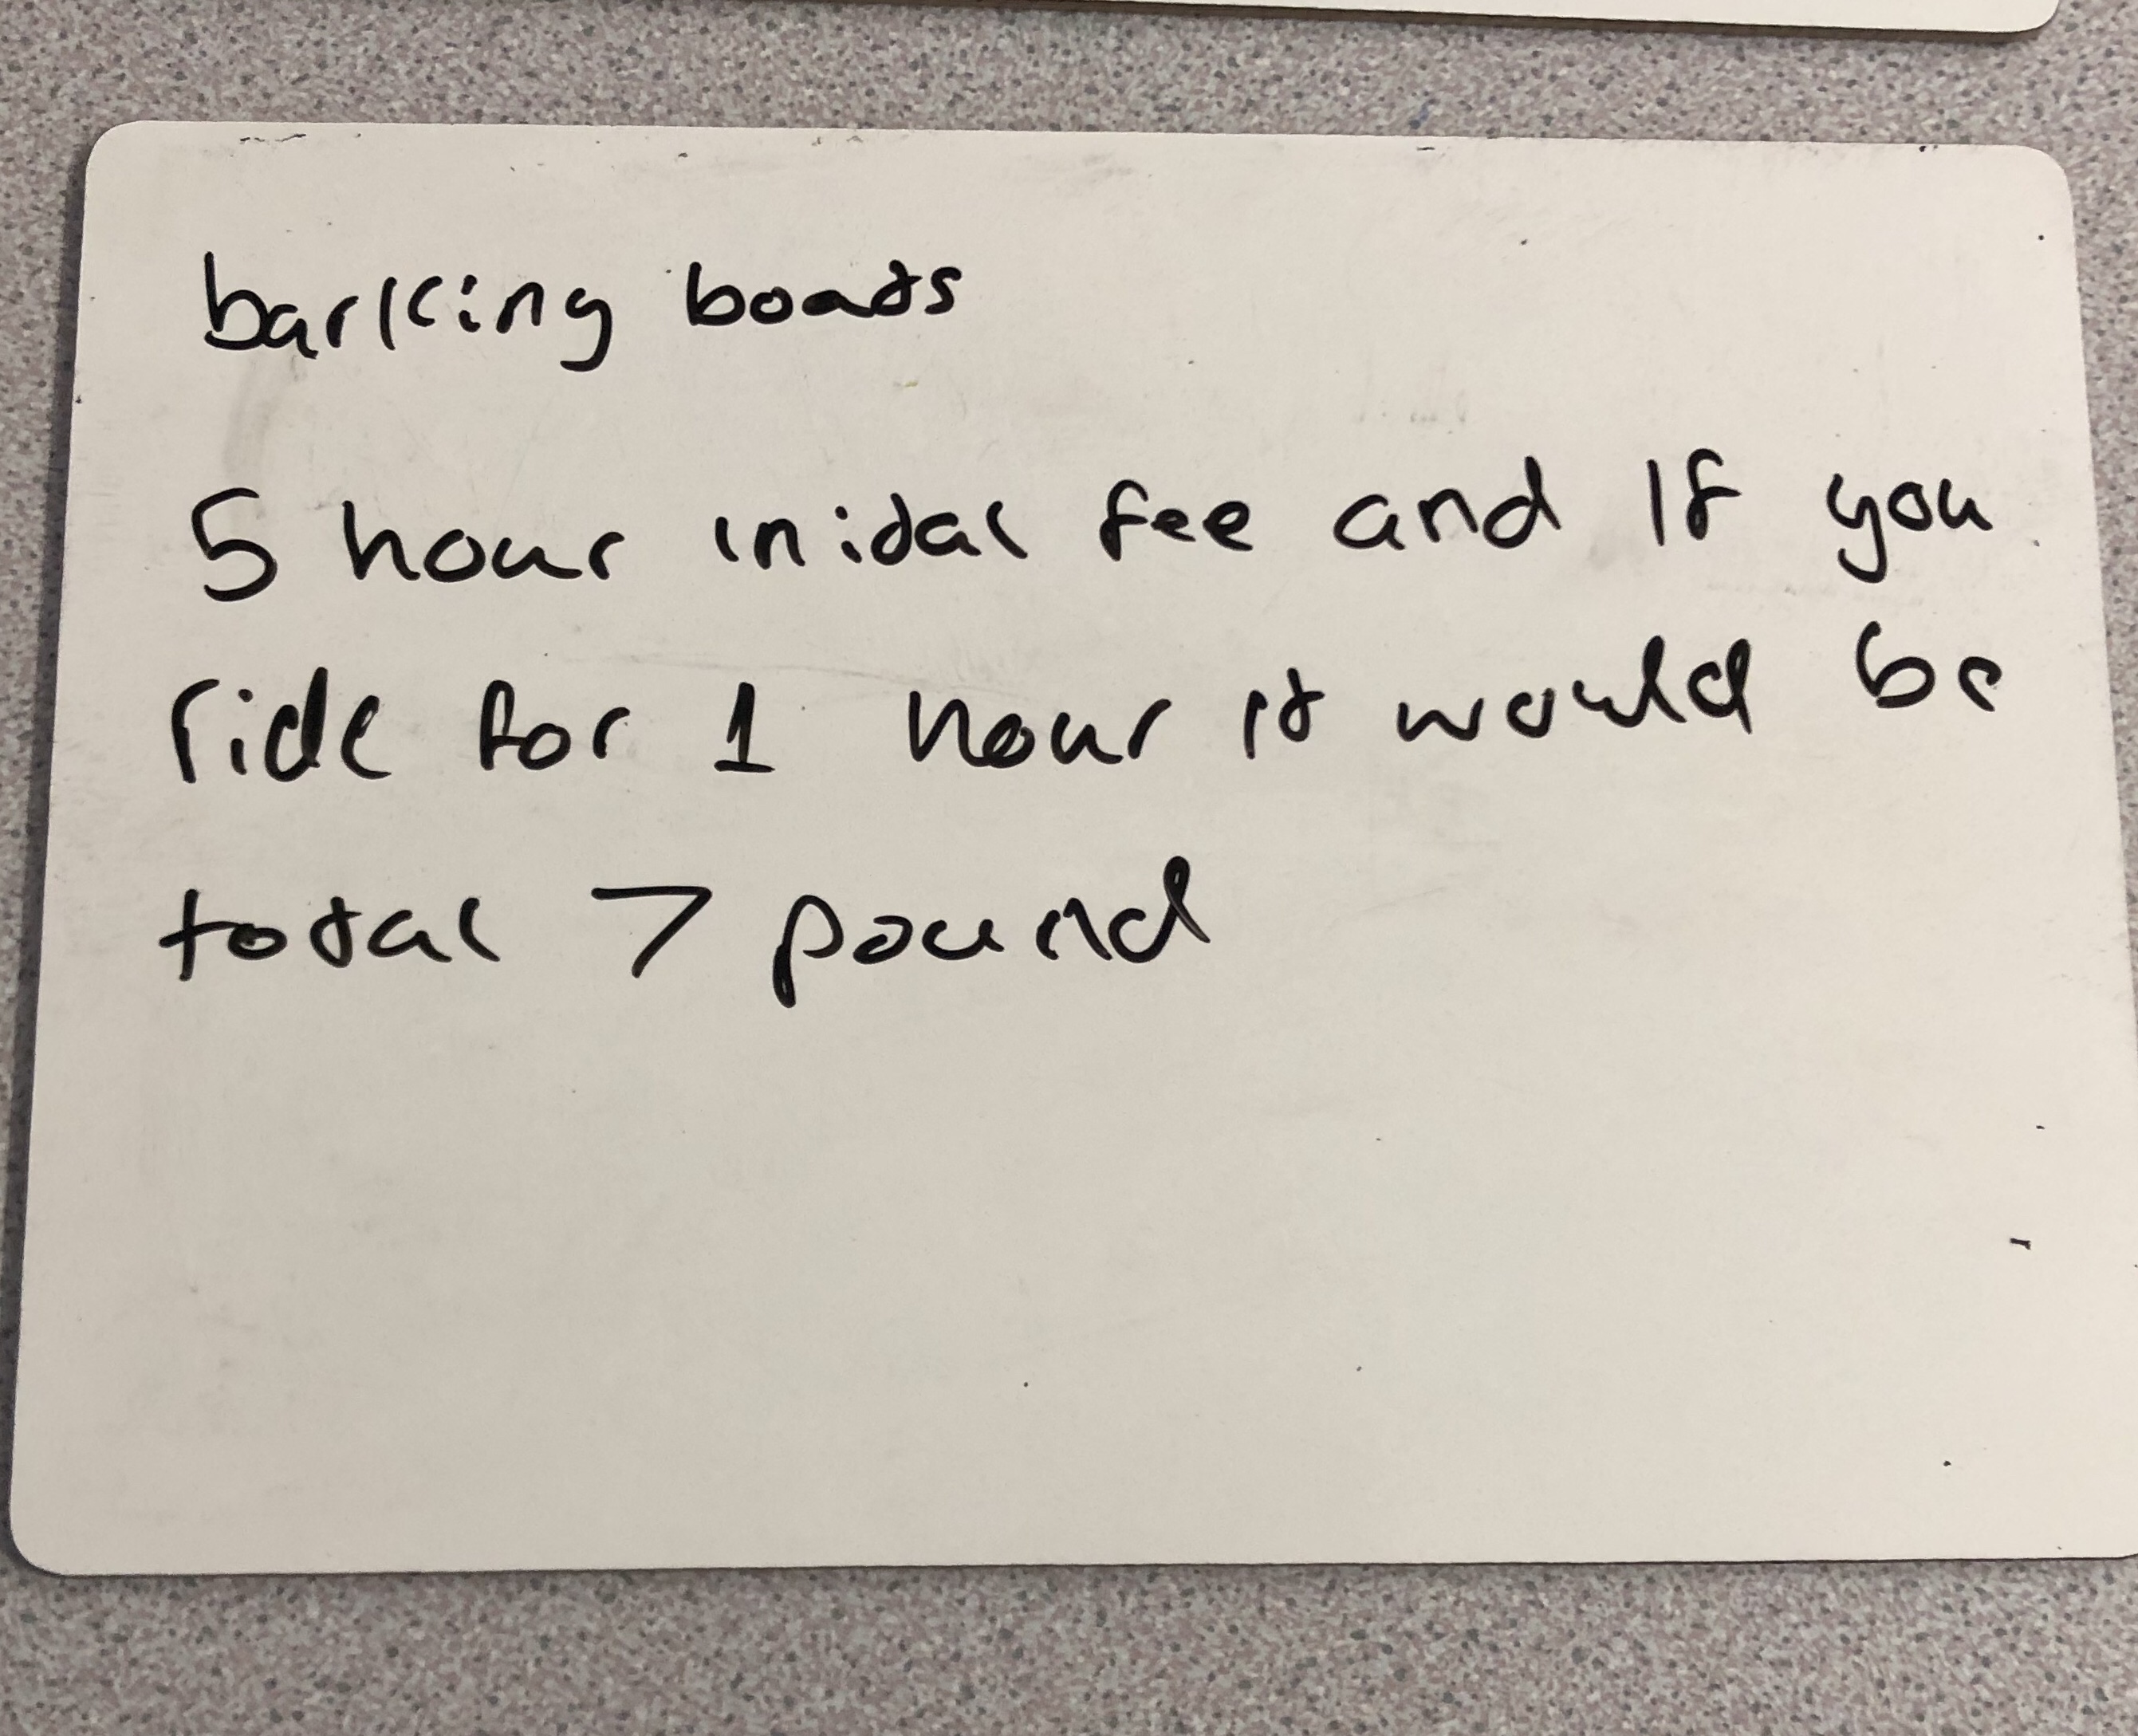 barking boats
5 hour inital fee and If you
ride for 1 hour it would be
total 7 pound